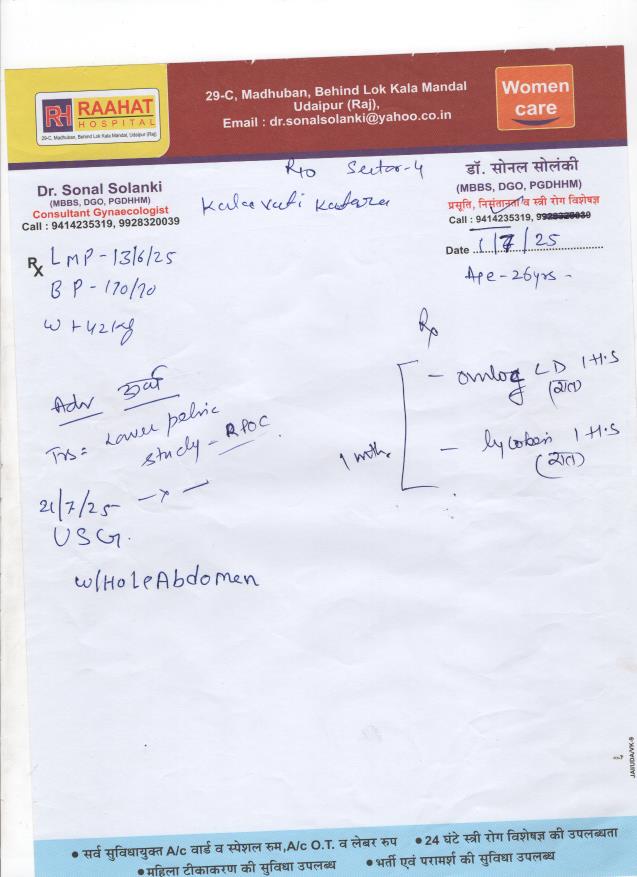 RH RAAHAT
HOSPITAL
29-C, Madhuban, Behind Lok Kala Mandal, Udaipur (Raj)
29-C, Madhuban, Behind Lok Kala Mandal
Udaipur (Raj),
Email : dr.sonalsolanki@yahoo.co.in
Women
care
Dr. Sonal Solanki
(MBBS, DGO, PGDHHM)
Consultant Gynaecologist
Call : 9414235319, 9928320039
R/o Sector-4
Kalavati Katara
डॉ. सोनल सोलंकी
(MBBS, DGO, PGDHHM)
प्रसूति, निसंतानता व स्त्री रोग विशेषज्ञ
Call : 9414235319, 9928320039
Date 1/7/25
Age - 26yrs -
Rx LMP - 13/6/25
BP - 170/70
Wt 42kg
Adv
Lower pelvic
study - RPOC
21/7/25 -x-
USG.
W/HoleAbdomen
Rx
- LD 1 H.S
(रात)
- 1 H.S
(रात)
1 mth
JAI/UDA/VK-9
• सर्व सुविधायुक्त A/c वार्ड व स्पेशल रुम,A/c O.T. व लेबर रुप • 24 घंटे स्त्री रोग विशेषज्ञ की उपलब्धता
• महिला टीकाकरण की सुविधा उपलब्ध • भर्ती एवं परामर्श की सुविधा उपलब्ध